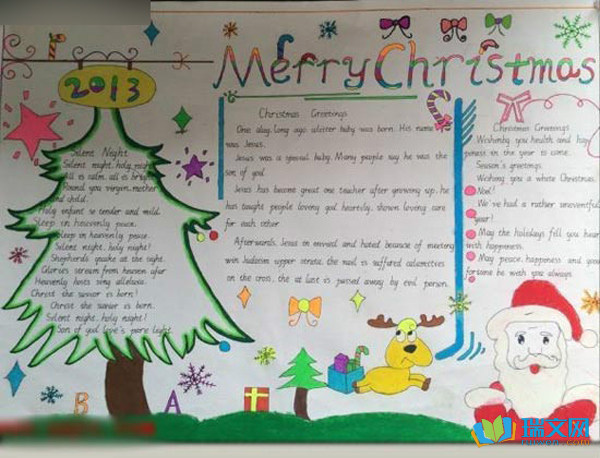 2013
Merry Christmas
Silent Night
Silent night, holy night
all is calm, all is bright
Round you virgin, mother
and child.
Holy infant so tender and mild
Sleep in heavenly peace.
Sleep in heavenly peace.
Silent night, holy night!
Shepherds quake at the sight.
Glories stream from heaven afar
Heavenly hosts sing alleluia.
Christ the savior is born!
Christ the savior is born.
Silent night, holy night!
Son of god love's pure light
Christmas Greetings
One day, long ago alister baby was born. His name
was Jesus.
Jesus was a special baby. Many people say he was the
son of god
Jesus has become great one teacher after growing up, he
has taught people loving god heartedly, shown loving care
for each other
Afterwards, Jesus on revival and hated because of meeting
win Judaism upper strata, the nail is suffered calamities
on the cross, the at last is passed away by evil person.
Christmas Greetings
Wishing you health and hap
piness in the year to come.
Season's greetings.
Wishing you a white Christmas.
Noel!
We've had a rather uneventful
year!
May the holidays fill you heart
with happiness.
May peace, happiness and good
fortune be with you always
B A
瑞文网